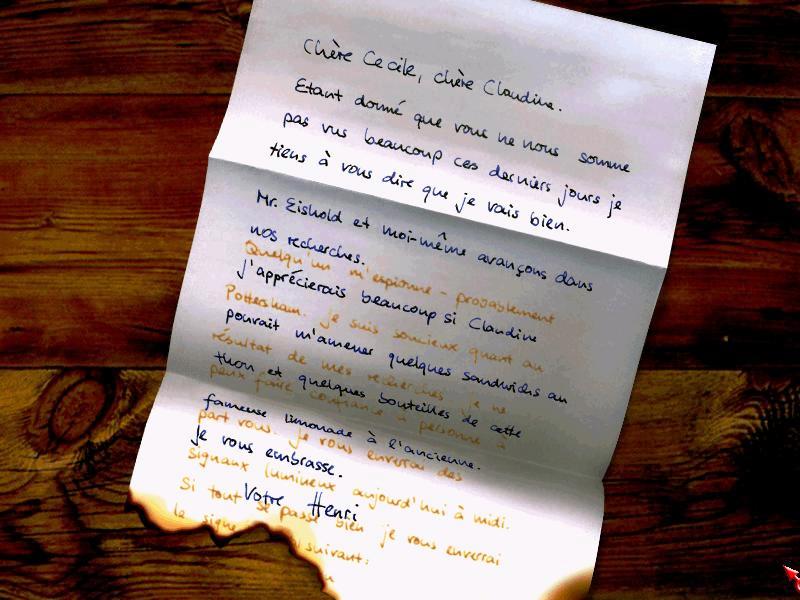 Chère Cecile, chère Claudine.
Etant donné que vous ne nous somme
pas vus beaucoup ces derniers jours je
tiens à vous dire que je vais bien.
Mr. Eishold et moi-même avançons dans
nos recherches.
Quelqu'un m'espionne - probablement
j'apprécierais beaucoup si Claudine
Pottersham. Je suis soucieux quant au
pourrait m'amener quelques sandwichs au
résultat de mes recherches, je ne
thon et quelques bouteilles de cette
peux faire confiance à personne à
fameuse limonade à l'ancienne.
part vous. Je vous enverrai des
je vous embrasse.
signaux lumineux aujourd'hui à midi.
Votre Henri
Si tout se passe bien je vous enverrai
le signe suivant: